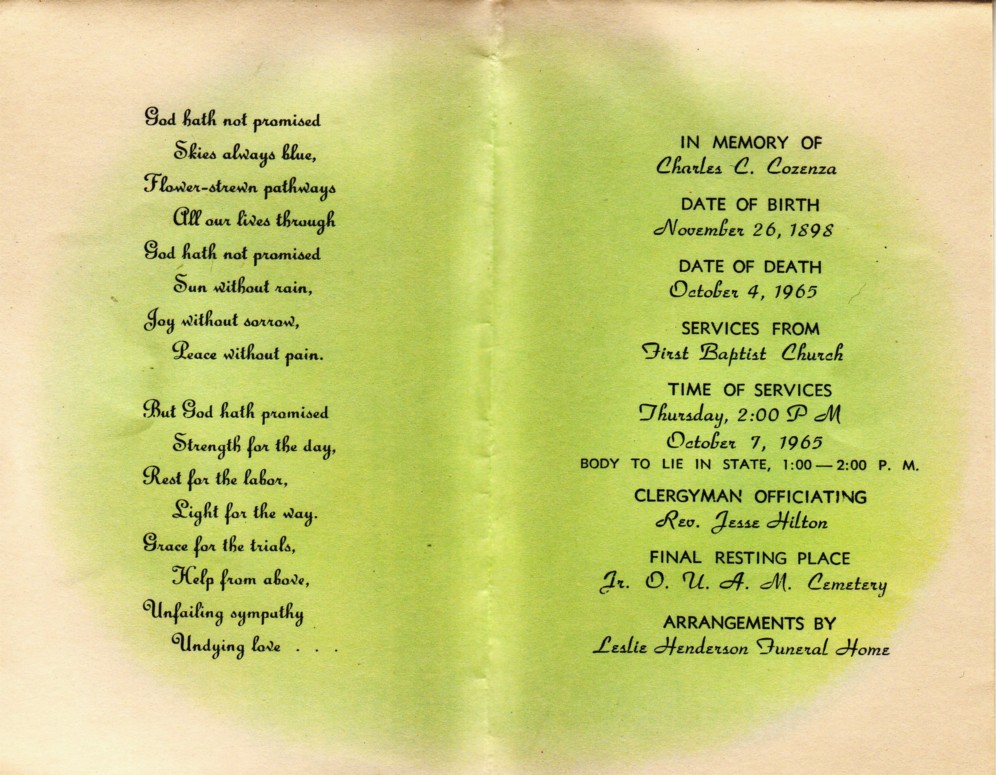 God hath not promised
Skies always blue,
Flower-strewn pathways
All our lives through
God hath not promised
Sun without rain,
Joy without sorrow,
Peace without pain.
But God hath promised
Strength for the day,
Rest for the labor,
Light for the way.
Grace for the trials,
Help from above,
Unfailing sympathy
Undying love . . .
IN MEMORY OF
Charles C. Cozenza
DATE OF BIRTH
November 26, 1898
DATE OF DEATH
October 4, 1965
SERVICES FROM
First Baptist Church
TIME OF SERVICES
Thursday, 2:00 P M
October 7, 1965
BODY TO LIE IN STATE, 1:00 — 2:00 P. M.
CLERGYMAN OFFICIATING
Rev. Jesse Hilton
FINAL RESTING PLACE
Jr. O. U. A. M. Cemetery
ARRANGEMENTS BY
Leslie Henderson Funeral Home